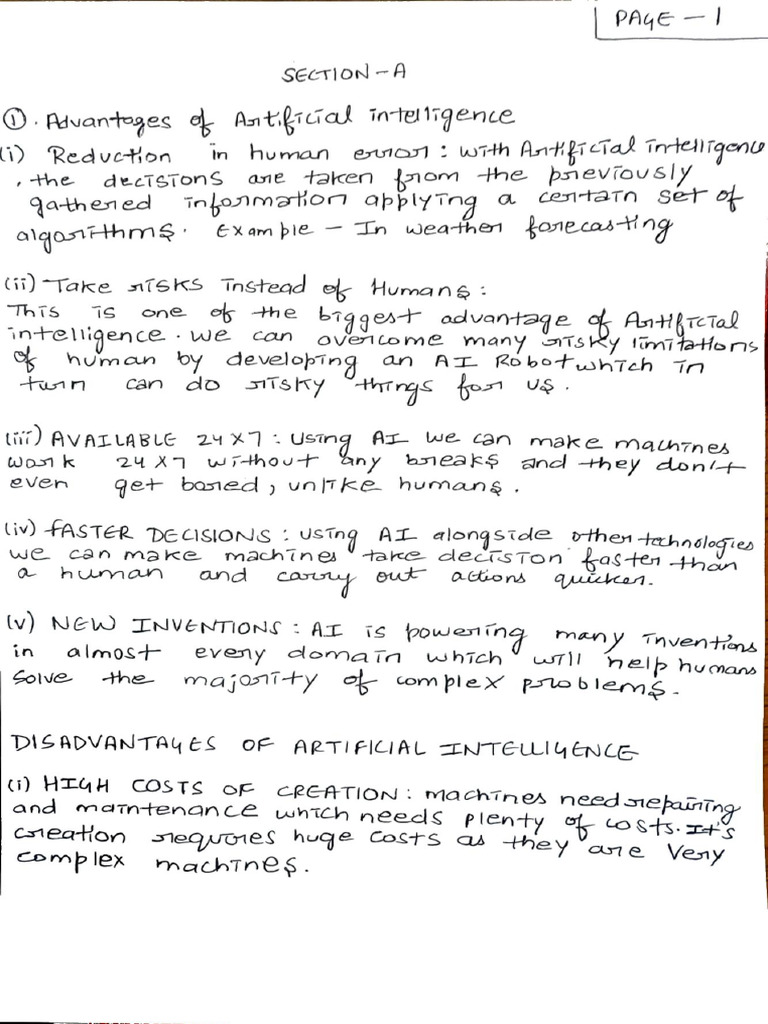 PAGE - 1
SECTION - A
①. Advantages of Artificial intelligence
(i) Reduction in human error : with Artificial intelligence
, the decisions are taken from the previously
gathered information applying a certain set of
algorithms. Example - In weather forecasting
(ii) Take risks instead of Humans :
This is one of the biggest advantage of Artificial
intelligence. we can overcome many risky limitations
of human by developing an AI Robot which in
turn can do risky things for us.
(iii) AVAILABLE 24X7 : using AI we can make machines
work 24X7 without any breaks and they don't
even get bored, unlike humans.
(iv) FASTER DECISIONS : using AI alongside other technologies
we can make machines take decision faster than
a human and carry out actions quicker.
(v) NEW INVENTIONS : AI is powering many inventions
in almost every domain which will help humans
solve the majority of complex problems.
DISADVANTAGES OF ARTIFICIAL INTELLIGENCE
(i) HIGH COSTS OF CREATION : machines need repairing
and maintenance which needs plenty of costs. It's
creation requires huge costs as they are very
complex machines.